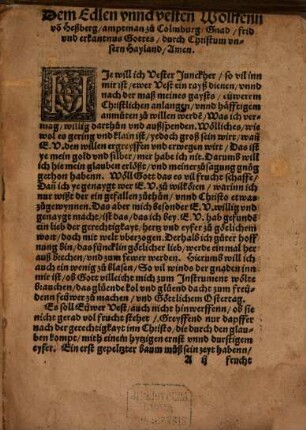 Dem Edlen vnnd vesten Wolffenn
vō Heßberg / amptman zů Colmburg / Gnad / frid
vnd erkantnus Gottes / durch Christum vn-
sern Hayland / Amen.
Je will ich Vester Junckher / so vil inn
mir ist / ewer Vest ein rayß dienen / vnnd
nach der maß meines gaysts / eüwerem
Christlichen anlangen / vnnd häfftigen
anmůten zů willen werdē / Was ich ver-
mag / willig darthůn vnd außspenden. Wölliches / wie
wol es gering vnd klain ist / yedoch groß sein wirt / wañ
E.V. den willen ergreyffen vnd erwegen wirt / Das ist
ye mein gold vnd silber / mer habe ich nit. Darumb will
ich hie mein glauben erlößt / vnd meiner zůsagung gnůg
gethon habenn. Wöll Gott das es vil frucht schaffe /
Dañ ich ye genaygt wer E.V. zů wilkören / warinn ich
nur wißte der ein gefallen zůthůn / vnnd Christo etwas
zůgewynnen. Das aber mich besonder E.V. willig vnd
genaygt mache / ist das / das ich bey E.V. hab gefunds
ein lieb der gerechtigkayt / hertz vnd eyfer zů götlichem
wort / doch mit welt vberzogen. Derhalb ich gůter hoff
nung bin / das füncklin götlicher lieb / werde ein mal her
auß brechen / vnd zum fewer werden. Hierumb will ich
auch ein wenig zů blasen / So vil winds der gnaden inn
mir ist / ob Gott villeicht mich zum Instrument wölte
brauchen / das glüende kol vnd glünd dacht zum freü-
denn feüwer zů machen / vnd Göttlichem Ostertag.
Es soll Eüwer Vest / auch nicht hinwerffenn / ob sie
nicht gerad vol frucht stehet / Greyffend nur dapffer
nach der gerechtigkayt inn Christo / die durch den glau
ben kompt / mit einem hytzigen ernst vnnd durstigem
eyfer. Ein erst gepeltzter baum můß sein zeyt habenn /
A ij frucht